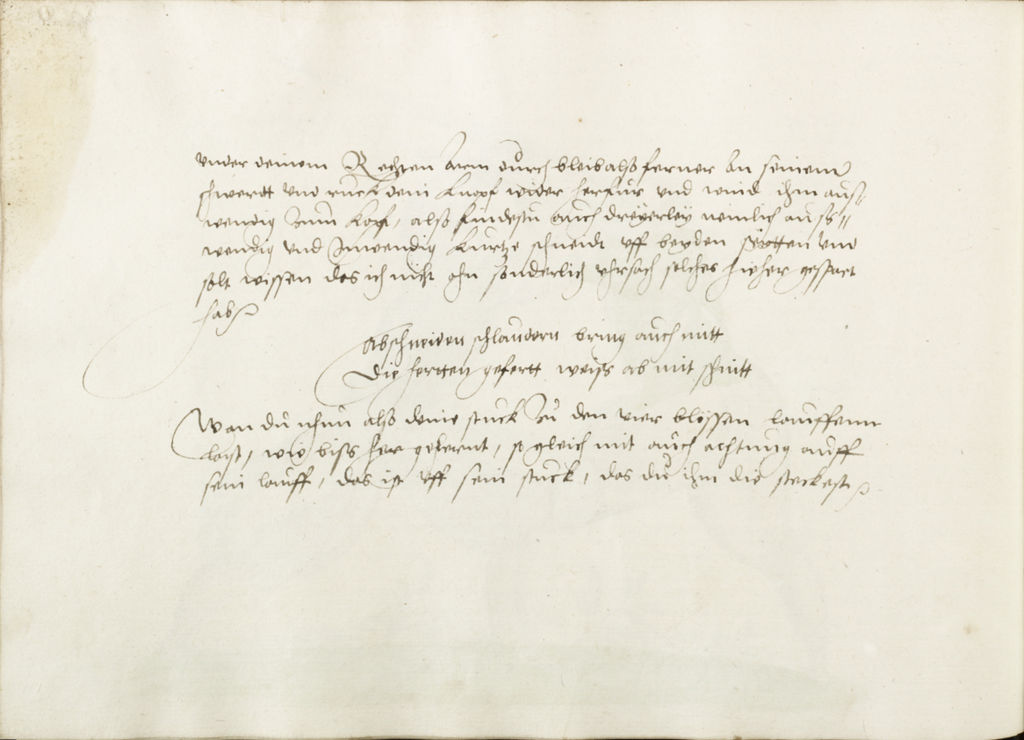 vnder deinem Rechten Arm durch bleib also ferner An seinem
schwerdt vnd ruck dein knopf wider herfur vnd wind ihm aus-
wendig zum kopf, also findestu auch dreyerley nemlich auss-
wendig vnd Inwendig kurtze schneidt vff beyden seitten vnd
solt wissen das ich nicht ohn sonderlich vhrsach solches hieher gespart
hab
Abschneiden schlaudern bring auch mitt
Die hertten gefertt weiss ab mit schnitt
Wan du nhun also deine stuck Zu den vier blössen lauffenn
last, wie biss her gelernt, so gleich mit auch achtung auff
sein lauff, das ist vff sein stuck, das du ihm die steckest